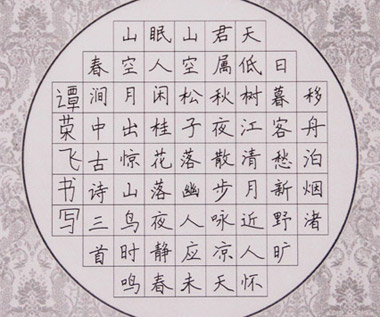 移舟泊烟渚
日暮客愁新野旷
天低树江清月近人怀
君属秋夜散步咏凉天
山空松子落幽人应未
眠人闲桂花落夜静春
山空月出惊山鸟时鸣
春涧中古诗三首
谭荣飞书写